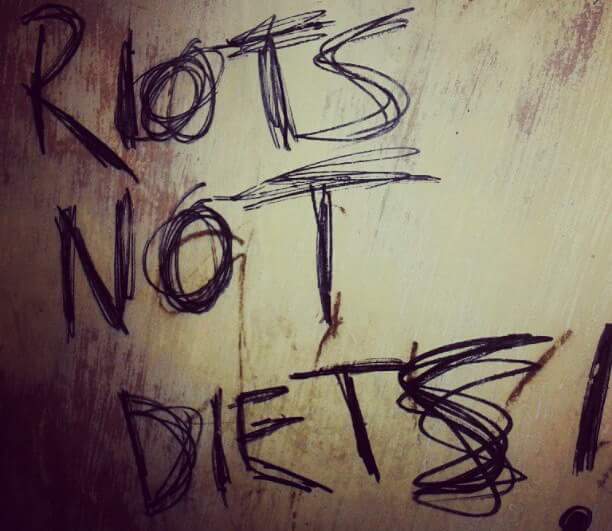 RIOTS
NOT
DIETS!